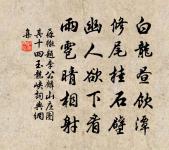 白龍宣飲潭
修尾挂石壁
幽人欲下看
雨雹晴相射
蘇轍題李公麟山庄圖
其十四玉龍峽詞典網
集